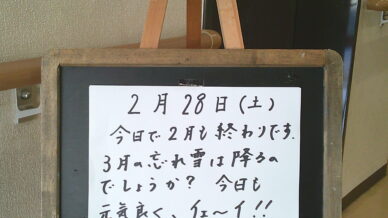 2月28日(土)
今日で2月も終わりです.
3月の忘れ雪は降るの
でしょうか? 今日も
元気良く、イェ〜イ!!